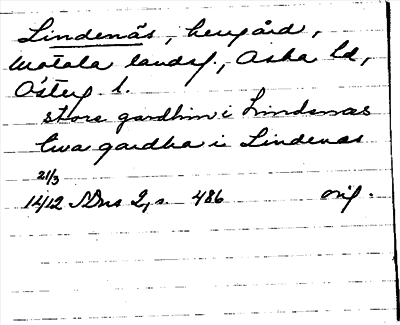 Lindenäs, herrgård,
Motala landsf., Aska hd,
Österg. l.
store gardhin i Lindenæs
twa gardha i Lindenas
21/3
1412 SDns 2, s. 486 orig.